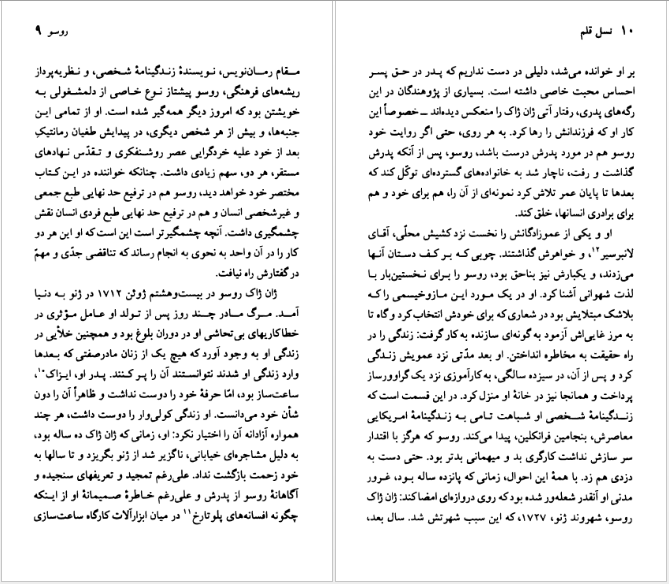 روسو ۹
مـقام رمـان‌نویس، نـویسندهٔ زنـدگینامهٔ شـخصی، و نظریه‌پرداز
ریشه‌های فرهنگی، روسو پیشتاز نوع خـاصی از دلمـشغولی بـه
خویشتن بود که امروز دیگر همه‌گیر شده است. او از تمامی ایـن
جنبه‌ها، و بیش از هر شخص دیگری، در پیدایش طغیان رمانتیکِ
بعد از خود علیه خردگرایی عصر روشـنفکری و تـقدّس نـهادهای
مستقر، هر دو، سهم زیادی داشت. چنانکه خواننده در این کـتاب
مختصر خود خواهد دید، روسو هم در ترفیع حد نهایی طبع جمعی
و غیرشخصی انسان و هم در ترفیع حد نهایی طبع فردی انسان نقش
چشمگیری داشت. آنچه چشمگیرتر است این است که او این هر دو
کار را در آن واحد به نحوی به انجام رساند که تناقضی جدّی و مهمّ
در گفتارش راه نیافت.
ژان ژاک روسو در بیست‌وهشتم ژوئن ۱۷۱۲ در ژنو بـه دنـیا
آمـد. مـرگ مـادر چـند روز پس از تـولد او عامل مـؤثری در
خطاکاریهای بی‌تحاشی او در دوران بلوغ بود و همچنین خلأیی در
زندگی او به وجود آورد که هیچ یک از زنان مادرصفتی که بـعدها
وارد زندگی او شدند نتوانستند آن را پـر کـنند. پـدر او، ایـزاک۱۰،
ساعت‌ساز بود، امّا حرفهٔ خود را دوست نداشت و ظاهراً آن را دون
شأن خود می‌دانست. او زندگی کولی‌وار را دوست داشت، هر چند
همواره آزادانه آن را اختیار نکرد: او، زمانی‌که ژان ژاک ده ساله بود،
به دلیل مشاجره‌ای خیابانی، ناگزیر شد از ژنو بگریزد و تا سالها به
خود زحمت بازگشت نداد. علی‌رغم تمجید و تعریفهای سنجیده و
آگاهانهٔ روسو از پدرش و علی‌رغم خـاطرهٔ صـمیمانهٔ او از ایـنکه
چگونه افسانه‌های پلوتارخ۱۱ در میان ابزارآلات کارگاه ساعت‌سازی
۱۰ نسل قلم
بر او خوانده می‌شد، دلیلی در دست نداریم که پـدر در حـق پسـر
احساس محبت خاصی داشته است. بسیاری از پژوهندگان در این
رگه‌های پدری، رفتار آتی ژان ژاک را منعکس دیده‌اند ــ خصوصاً این
کار او که فرزندانش را رها کرد. به هر روی، حتی اگر روایت خود
روسو هم در مورد پدرش درست باشد، روسو، پس از آنکه پدرش
گذاشت و رفت، ناچار شد به خانواده‌های گسترده‌ای توکّل کند که
بعدها تا پایان عمر تلاش کرد نمونه‌ای از آن را، هم برای خود و هم
برای برادری انسانها، خلق کند.
او و یکی از عموزادگانش را نخست نزد کشیش محلّی، آقـای
لانبرسیر۱۲، و خواهرش گذاشتند. چوبی کـه بـر کـف دسـتان آنـها
می‌زدند، و یکبارش نیز بناحق بود، روسو را برای نخستین‌بار بـا
لذت شهوانی آشنا کرد. او در یک مورد ایـن مـازوخیسمی را کـه
بلاشک مبتلایش بود در شعاری که برای خودش انتخاب کرد و گاه تا
به مرز غایی‌اش آزمود به گونه‌ای سازنده به کار گرفت: زندگی را در
راه حقیقت به مخاطره انداختن. او بعد مدّتی نزد عمویش زنـدگی
کرد و پس از آن، در سیزده سالگی، به‌کارآموزی نزد یک گراوورساز
پرداخت و همانجا نیز در خانهٔ او منزل کرد. در این قسمت است که
زنـدگینامهٔ شـخصی او شـباهت تـامی بـه زنـدگینامهٔ امـریکایی
معاصرش، بنجامین فرانکلین، پیدا می‌کند. روسو که هرگز با اقتدار
سر سازش نداشت کارگری بد و میهمانی بدتر بود. حتی دست به
دزدی هم زد. با همهٔ این احوال، زمانی که پانزده ساله بـود، غـرور
مدنی او آنقدر شعله‌ور شده بود که روی دروازه‌ای امضا کند: ژان ژاک
روسو، شهروند ژنو، ۱۷۲۷، که این سبب شهرتش شد. سال بعد،